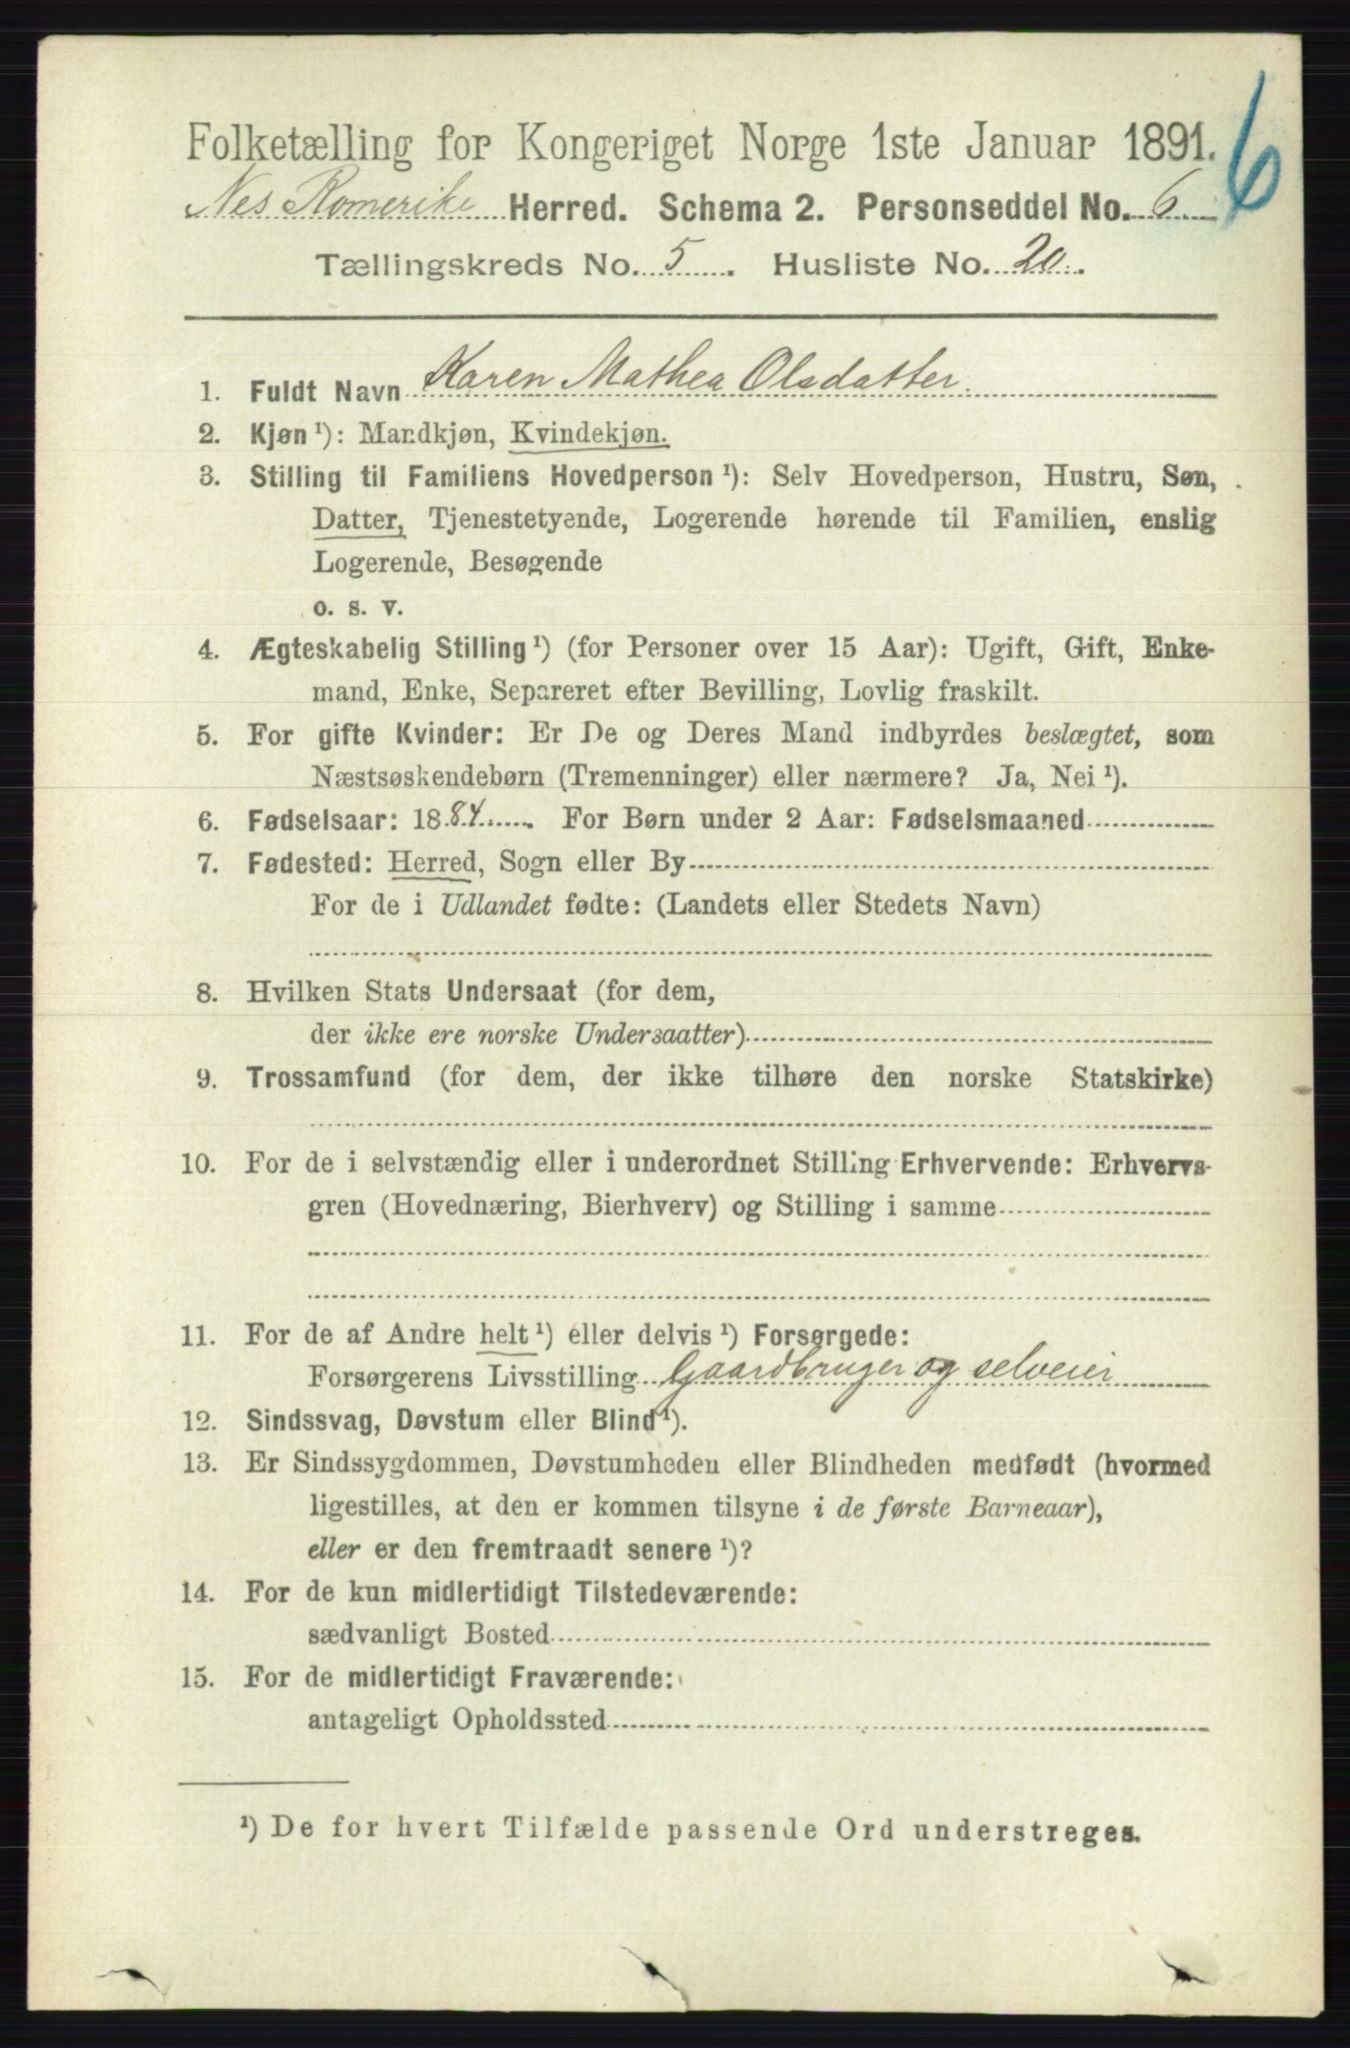 6
Folketælling for Kongeriget Norge 1ste Januar 1891.
Nes Romerike Herred. Schema 2. Personseddel No. 6
Tællingskreds No. 5. Husliste No. 20.
1. Fuldt Navn Karen Mathea Olsdatter.
2. Kjøn ¹): Mandkjøn, Kvindekjøn.
3. Stilling til Familiens Hovedperson ¹): Selv Hovedperson, Hustru, Søn,
Datter, Tjenestetyende, Logerende hørende til Familien, enslig
Logerende, Besøgende
o. s. v.
4. Ægteskabelig Stilling ¹) (for Personer over 15 Aar): Ugift, Gift, Enke-
mand, Enke, Separeret efter Bevilling, Lovlig fraskilt.
5. For gifte Kvinder: Er De og Deres Mand indbyrdes beslægtet, som
Næstsøskendebørn (Tremenninger) eller nærmere? Ja, Nei ¹).
6. Fødselsaar: 1884. For Børn under 2 Aar: Fødselsmaaned
7. Fødested: Herred, Sogn eller By
For de i Udlandet fødte: (Landets eller Stedets Navn)
8. Hvilken Stats Undersaat (for dem,
der ikke ere norske Undersaatter)
9. Trossamfund (for dem, der ikke tilhøre den norske Statskirke)
10. For de i selvstændig eller i underordnet Stilling Erhvervende: Erhvervs-
gren (Hovednæring, Bierhverv) og Stilling i samme
11. For de af Andre helt ¹) eller delvis ¹) Forsørgede:
Forsørgerens Livsstilling Gaardbruger og selveier
12. Sindssvag, Døvstum eller Blind ¹).
13. Er Sindssygdommen, Døvstumheden eller Blindheden medfødt (hvormed
ligestilles, at den er kommen tilsyne i de første Barneaar),
eller er den fremtraadt senere ¹)?
14. For de kun midlertidigt Tilstedeværende:
sædvanligt Bosted
15. For de midlertidigt Fraværende:
antageligt Opholdssted
¹) De for hvert Tilfælde passende Ord understreges.